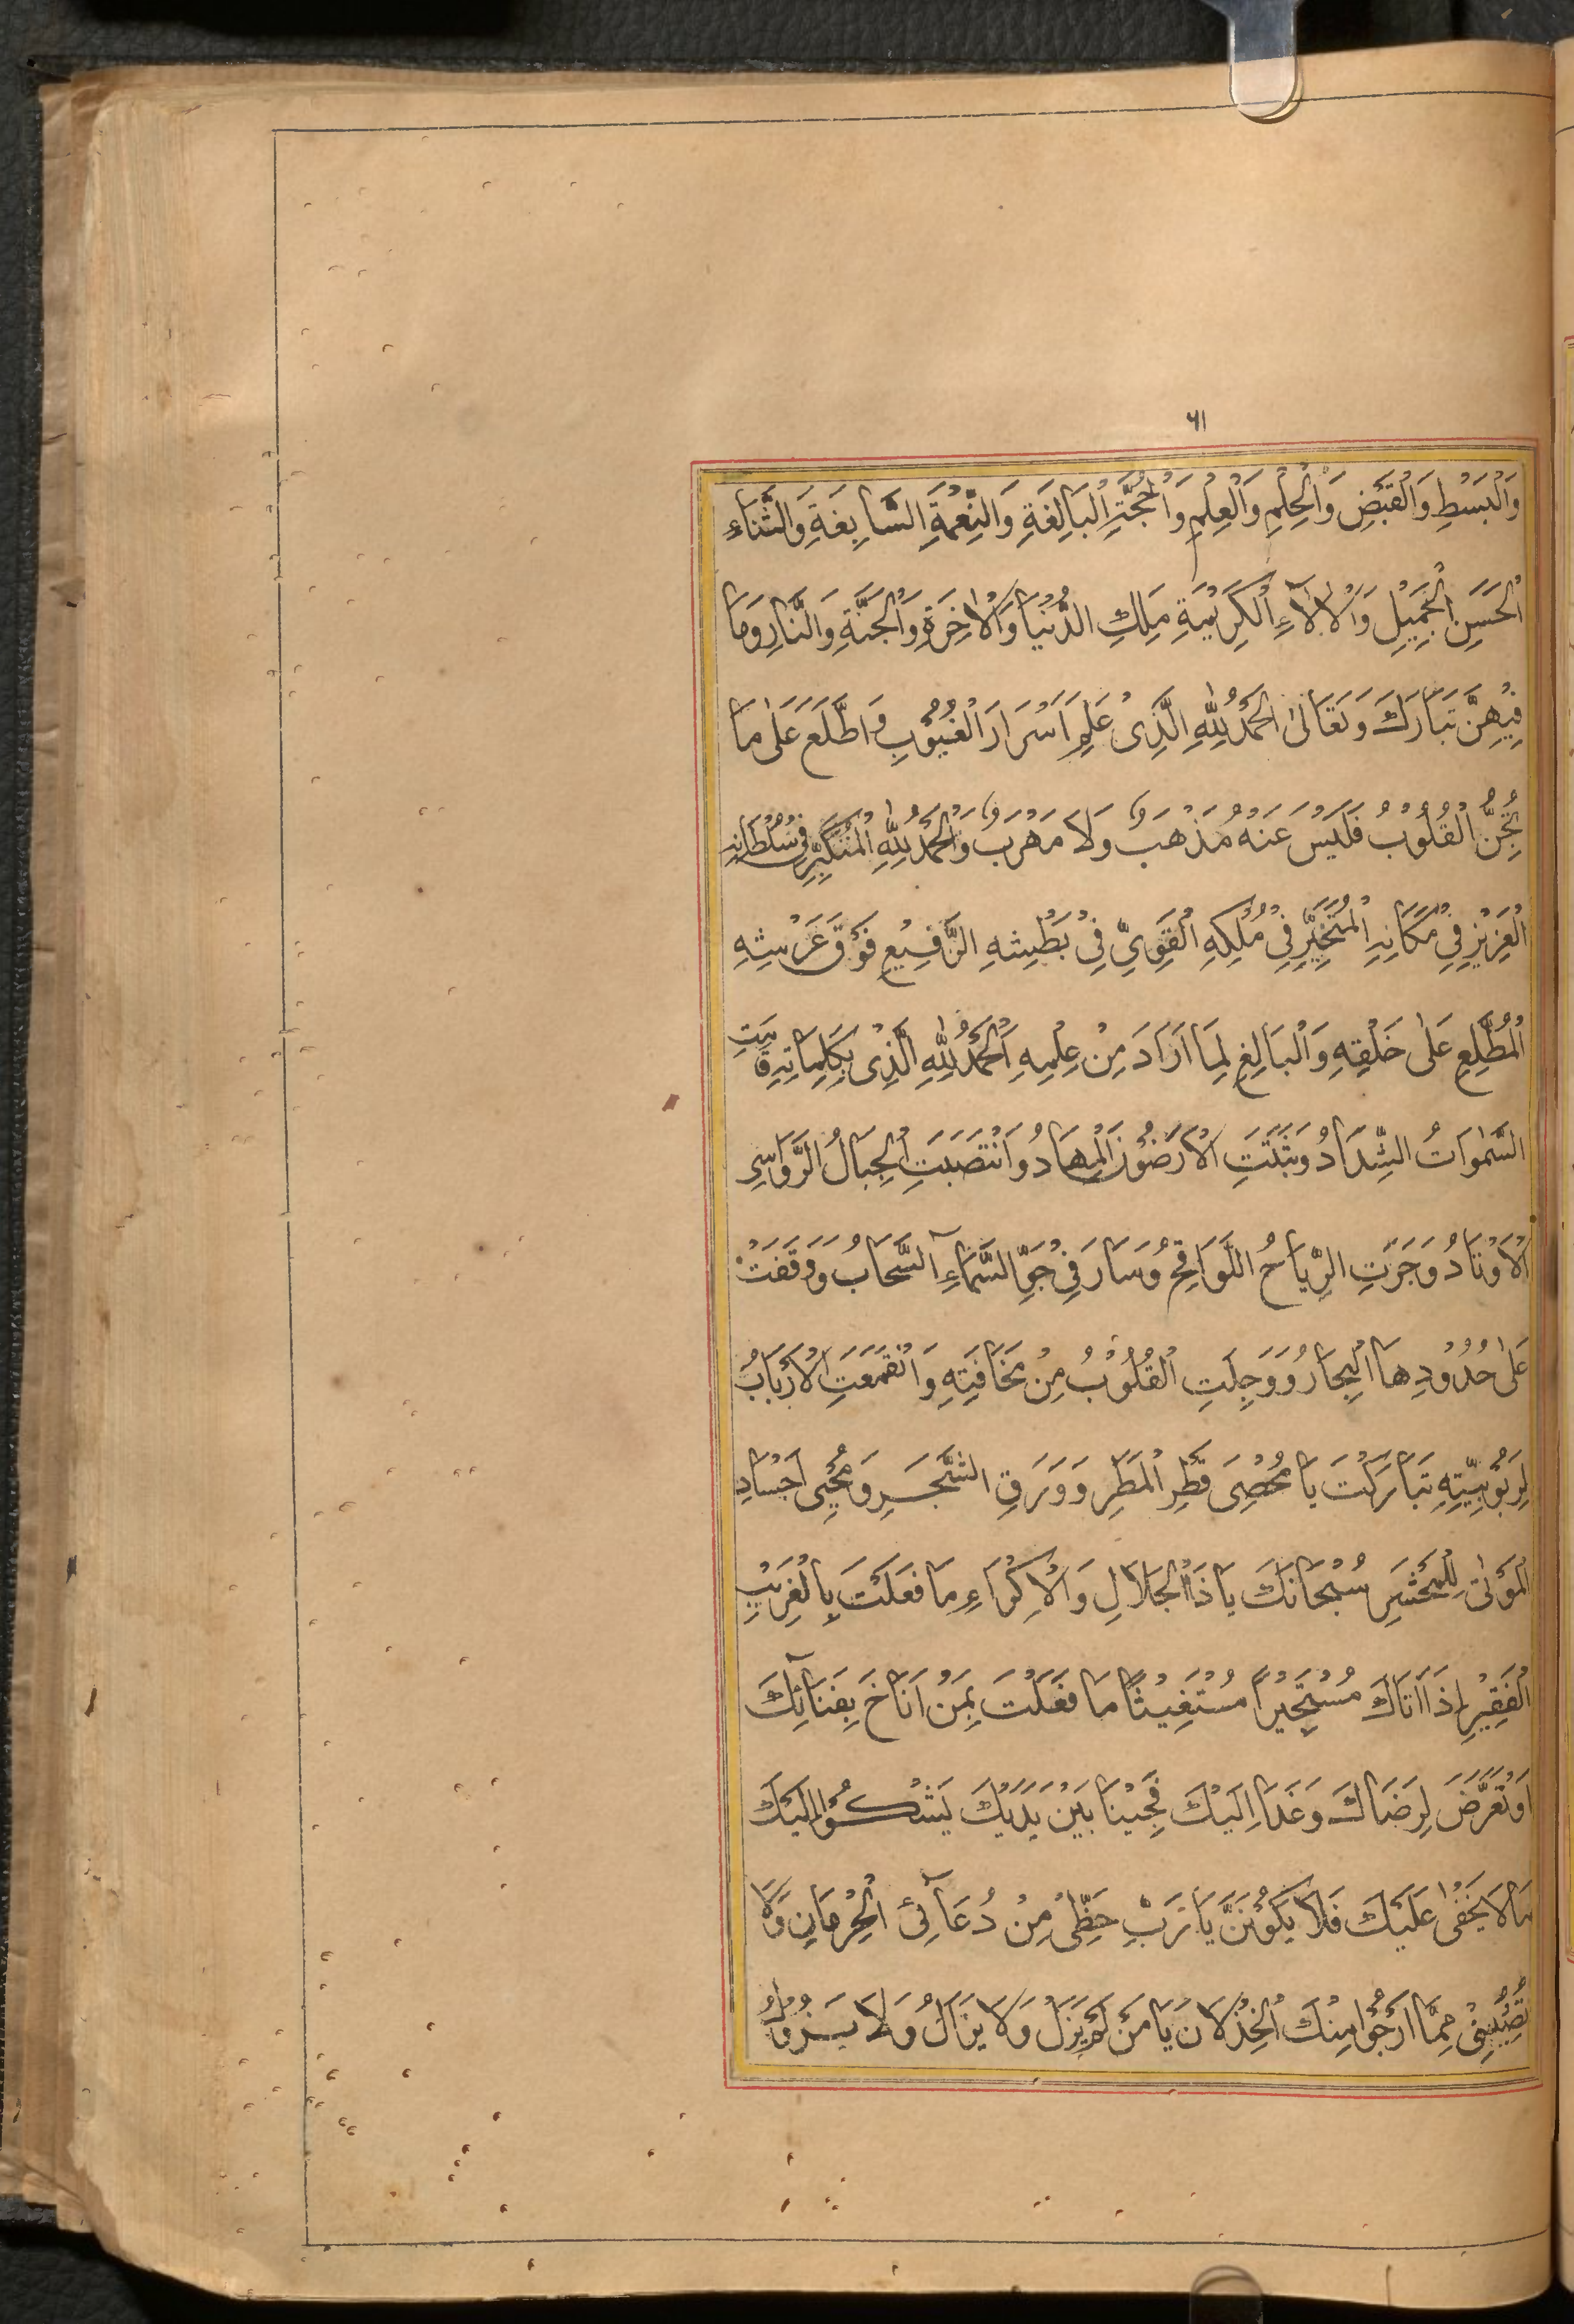 ٦١
وَالْبَسْطِ وَالْقَبْضِ وَالْحِلْمِ وَالْعِلْمِ وَالْحُجَّةِ الْبَالِغَةِ وَالنِّعْمَةِ السَّابِغَةِ وَالثَّنَاءِ
الْحَسَنِ الْجَمِيْلِ وَالْاٰلَاۤءِ الْكَرِيْمَةِ مَلِكِ الدُّنْيَا وَالْاٰخِرَةِ وَالْجَنَّةِ وَالنَّارِ وَمَا
فِيْهِنَّ تَبَارَكَ وَتَعَالٰى اَلْحَمْدُ لِلّٰهِ الَّذِىْ عَلِمَ اَسْرَارَ الْغُيُوْبِ وَاطَّلَعَ عَلٰى مَا
تُجِنُّ الْقُلُوْبُ فَلَيْسَ عَنْهُ مَذْهَبٌ وَلَا مَهْرَبٌ وَالْحَمْدُ لِلّٰهِ الْمُتَكَبِّرِ فِىْ سُلْطَانِهِ
الْعَزِيْزِ فِىْ مَكَانِهِ الْمُتَجَبِّرِ فِىْ مُلْكِهِ الْقَوِىِّ فِىْ بَطْشِهِ الرَّفِيْعِ فَوْقَ عَرْشِهِ
الْمُطَّلِعِ عَلٰى خَلْقِهِ وَالْبَالِغِ لِمَا اَرَادَ مِنْ عِلْمِهِ اَلْحَمْدُ لِلّٰهِ الَّذِىْ بِكَلِمَاتِهِ قَامَتِ
السَّمٰوَاتُ الشِّدَادُ وَثَبَتَتِ الْاَرَضُوْنَ الْمِهَادُ وَانْتَصَبَتِ الْجِبَالُ الرَّوَاسِى
الْاَوْتَادُ وَجَرَتِ الرِّيَاحُ اللَّوَاقِحُ وَسَارَ فِىْ جَوِّ السَّمَاۤءِ السَّحَابُ وَوَقَفَتْ
عَلٰى حُدُوْدِهَا الْبِحَارُ وَوَجِلَتِ الْقُلُوْبُ مِنْ مَخَافَتِهِ وَانْقَمَعَتِ الْاَرْبَابُ
لِرَبُوْبِيَّتِهِ تَبَارَكْتَ يَا مُحْصِىَ قَطْرِ الْمَطَرِ وَوَرَقِ الشَّجَرِ وَمُحْيِى اَجْسَادِ
الْمَوْتٰى لِلْحَشْرِ سُبْحَانَكَ يَا ذَاالْجَلَالِ وَالْاِكْرَامِ مَا فَعَلْتَ بِالْغَرِيْبِ
الْفَقِيْرِ اِذَا اَتَاكَ مُسْتَجِيْرًا مُسْتَغِيْثًا مَا فَعَلْتَ بِمَنْ اَنَاخَ بِفَنَاۤئِكَ
اَوْ تَعَرَّضَ لِرَضَاكَ وَغَدَا اِلَيْكَ فَجَيْنَا بَيْنَ يَدَيْكَ يَشْكُوْا اِلَيْكَ
مَا لَا يَخْفٰى عَلَيْكَ فَلَا يَكُوْنَنَّ يَا رَبِّ حَظِّىْ مِنْ دُعَاۤئِىْ الْحِرْمَانِ وَلَا
نَصِيْبِىْ مِمَّا اَرْجُوْا مِنْكَ الْخِذْلَانَ يَا مَنْ لَمْ يَزَلْ وَلَا يَزَالُ وَلَا يَزُوْلُ